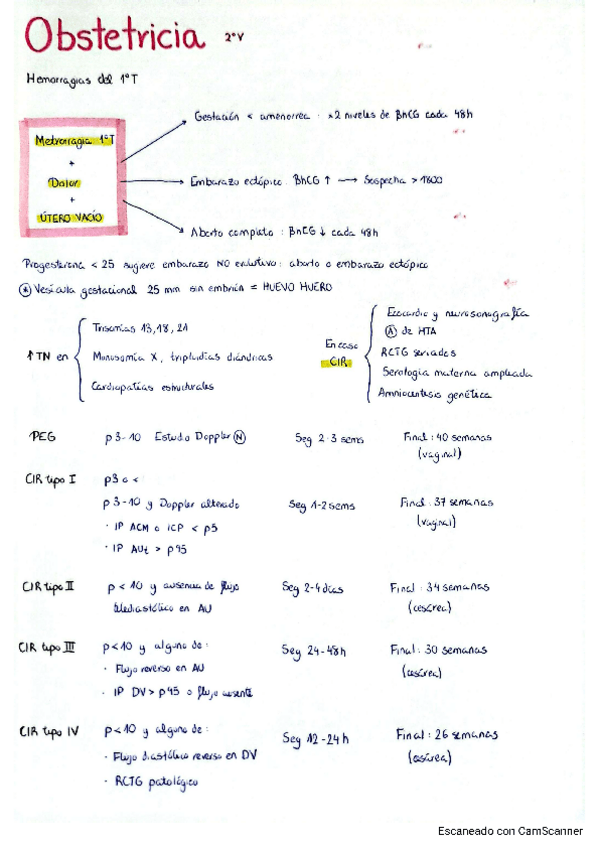 Obstetricia 2ºV
Hemorragias del 1ºT
Metrorragia 1ºT
+
Dolor
+
ÚTERO VACÍO
Gestación < amenorrea : x2 niveles de BhCG cada 48h
Embarazo ectópico: BhCG ↑ → Sospecha > 1800
Aborto completo : BhCG ↓ cada 48h
Progesterona < 25 sugiere embarazo NO evolutivo: aborto o embarazo ectópico
* Vesícula gestacional 25 mm sin embrión = HUEVO HUERO
↑TN en
Trisomías 13, 18, 21
Monosomía X, triploidías diándricas
Cardiopatías estructurales
En caso
CIR
Ecocardio y neurosonografía
A de HTA
RCTG seriados
Serología materna ampliada
Amniocentesis genética
PEG p3-10 Estudio Doppler N Seg 2-3 sems Final: 40 semanas
(vaginal)
CIR tipo I p3 o <
p3-10 y Doppler alterado Seg 1-2 sems Final: 37 semanas
(vaginal)
· IP ACM o ICP < p5
· IP AUt > p95
CIR tipo II p < 10 y ausencia de flujo Seg 2-4 días Final: 34 semanas
telediastólico en AU (cesárea)
CIR tipo III p<10 y alguno de: Seg 24-48h Final: 30 semanas
· Flujo reverso en AU (cesárea)
· IP DV > p95 o flujo ausente
CIR tipo IV p<10 y alguno de: Seg 12-24h Final: 26 semanas
· Flujo diastólico reverso en DV (cesárea)
· RCTG patológico
Escaneado con CamScanner